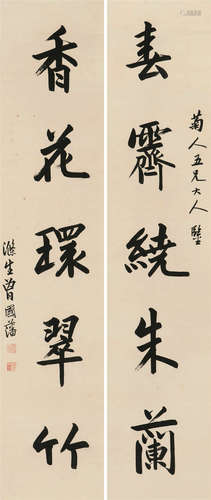 菊人五兄大人鑒
春霽繞朱蘭
香花環翠竹
滌生曾國藩